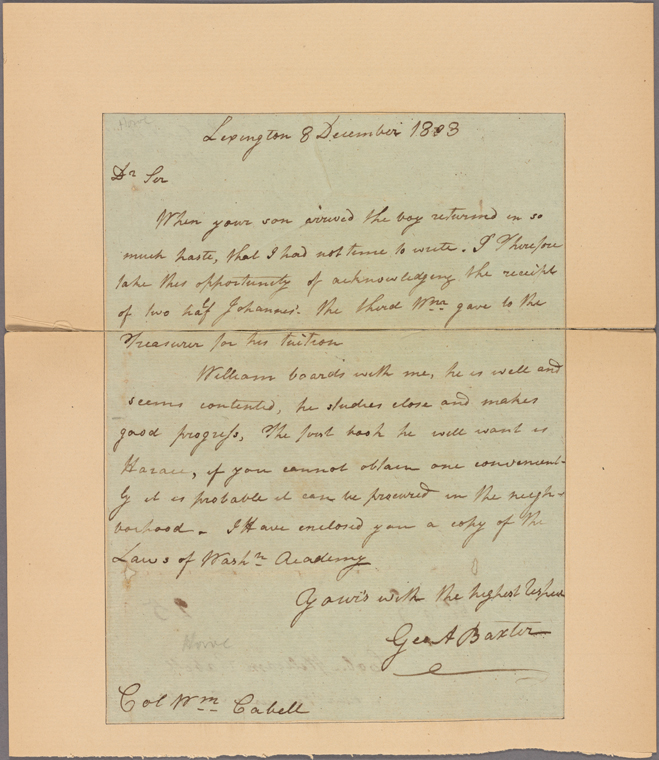 Lexington 8 December 1803
Dr Sir
When your son arrived the boy returned in so
much haste, that I had not time to write. I Therefore
take this opportunity of acknowledging the receipt
of two half Johannes. the third Wm gave to the
Treasurer for his tuition
William boards with me, he is well and
seems contented, he studies close and makes
good progress, The first book he will want is
Horace, if you cannot obtain one convenient-
ly it is probable it can be procured in the neigh-
borhood - I Have enclosed you a copy of the
Laws of Washn Academy
Yours with the highest respect
Geo A Baxter
Howe
Col Wm Cabell